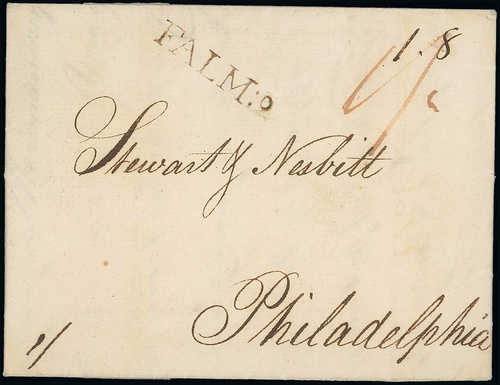 FALM:o
1.8
Stewart & Nesbitt
Philadelphia
1/